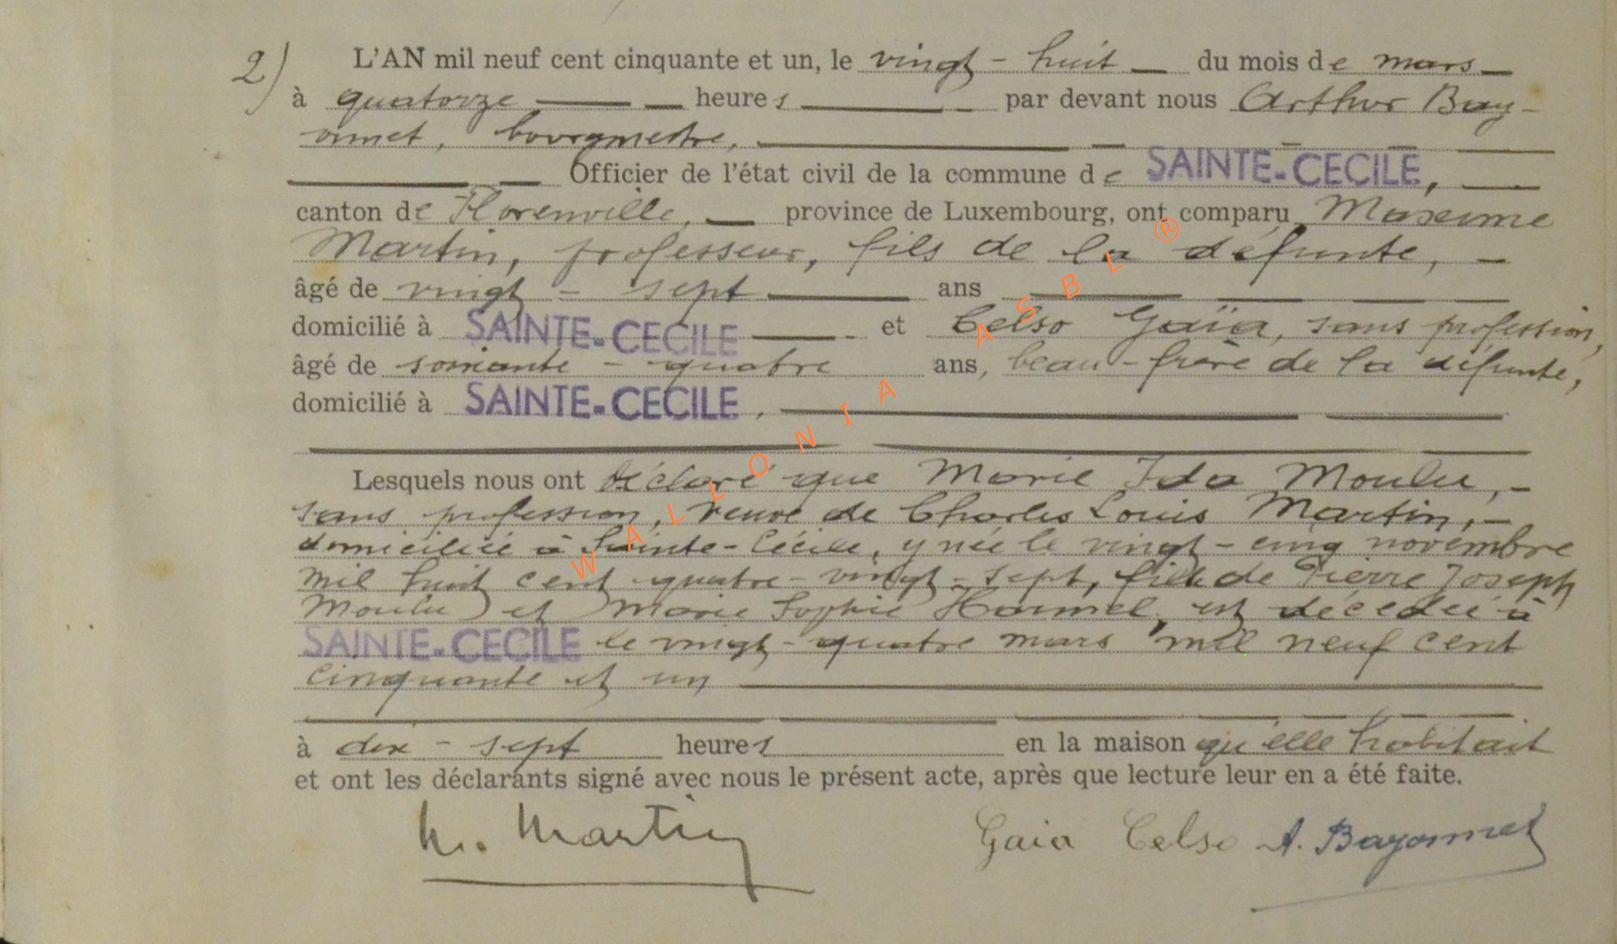 2) L'AN mil neuf cent cinquante et un, le vingt-huit du mois de mars
à quatorze heures par devant nous Arthur Bay-
onnet, bourgmestre,
Officier de l'état civil de la commune de SAINTE-CECILE,
canton de Florenville, province de Luxembourg, ont comparu Maxime
Martin, professeur, fils de la défunte,
âgé de vingt-sept ans
domicilié à SAINTE-CECILE et Celso Gaïa, sans profession,
âgé de soixante-quatre ans, beau-frère de la défunte,
domicilié à SAINTE-CECILE,
Lesquels nous ont déclaré que Marie Ida Moulu,
sans profession, veuve de Charles Louis Martin,
domiciliée à Sainte-Cécile, y née le vingt-cinq novembre
mil huit cent quatre-vingt-sept, fille de Pierre Joseph
Moulu et Marie Sophie Hamel, est décédée à
SAINTE-CECILE le vingt-quatre mars mil neuf cent
cinquante et un
à dix-sept heures en la maison qu'elle habitait
et ont les déclarants signé avec nous le présent acte, après que lecture leur en a été faite.
M. Martin Gaia Celso A. Bayonnet
WALLONIA ASBL ®